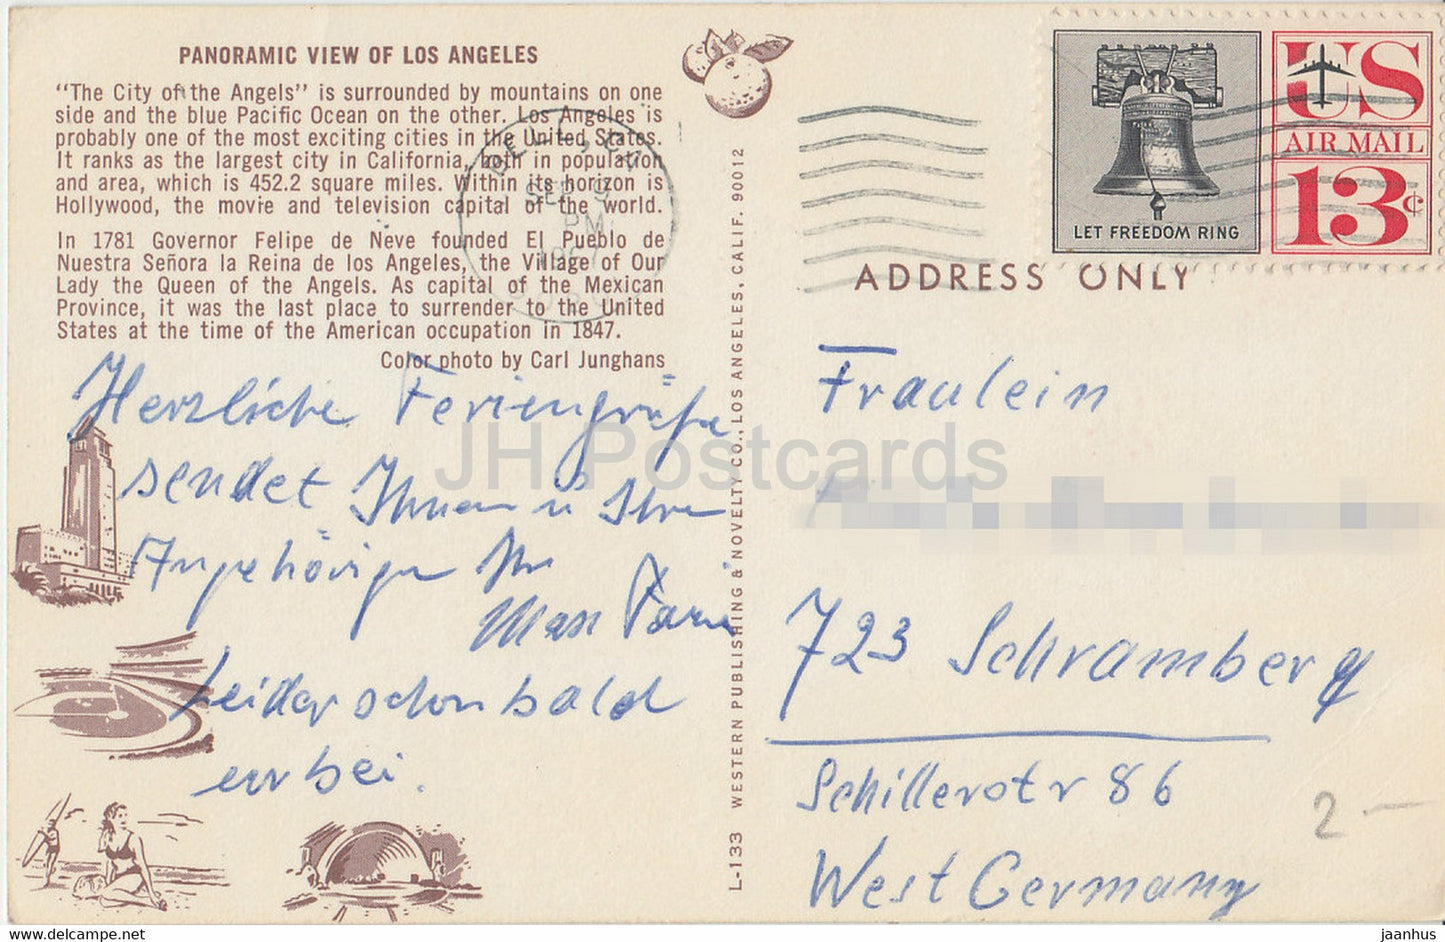 PANORAMIC VIEW OF LOS ANGELES
"The City of the Angels" is surrounded by mountains on one
side and the blue Pacific Ocean on the other. Los Angeles is
probably one of the most exciting cities in the United States.
It ranks as the largest city in California, both in population
and area, which is 452.2 square miles. Within its horizon is
Hollywood, the movie and television capital of the world.
In 1781 Governor Felipe de Neve founded El Pueblo de
Nuestra Señora la Reina de los Angeles, the Village of Our
Lady the Queen of the Angels. As capital of the Mexican
Province, it was the last place to surrender to the United
States at the time of the American occupation in 1847.
Color photo by Carl Junghans
Herzliche Feriengrüße
sendet Ihnen u Ihre
Angehörigen Ihr
Max
Leider schon bald
vorbei.
SEP 9
PM
L-133 WESTERN PUBLISHING & NOVELTY CO., LOS ANGELES, CALIF. 90012
LET FREEDOM RING
US
AIR MAIL
13¢
ADDRESS ONLY
Fräulein
723 Schramberg
Schillerstr 86
West Germany
2-
JH Postcards
www.delcampe.net
jaanhus